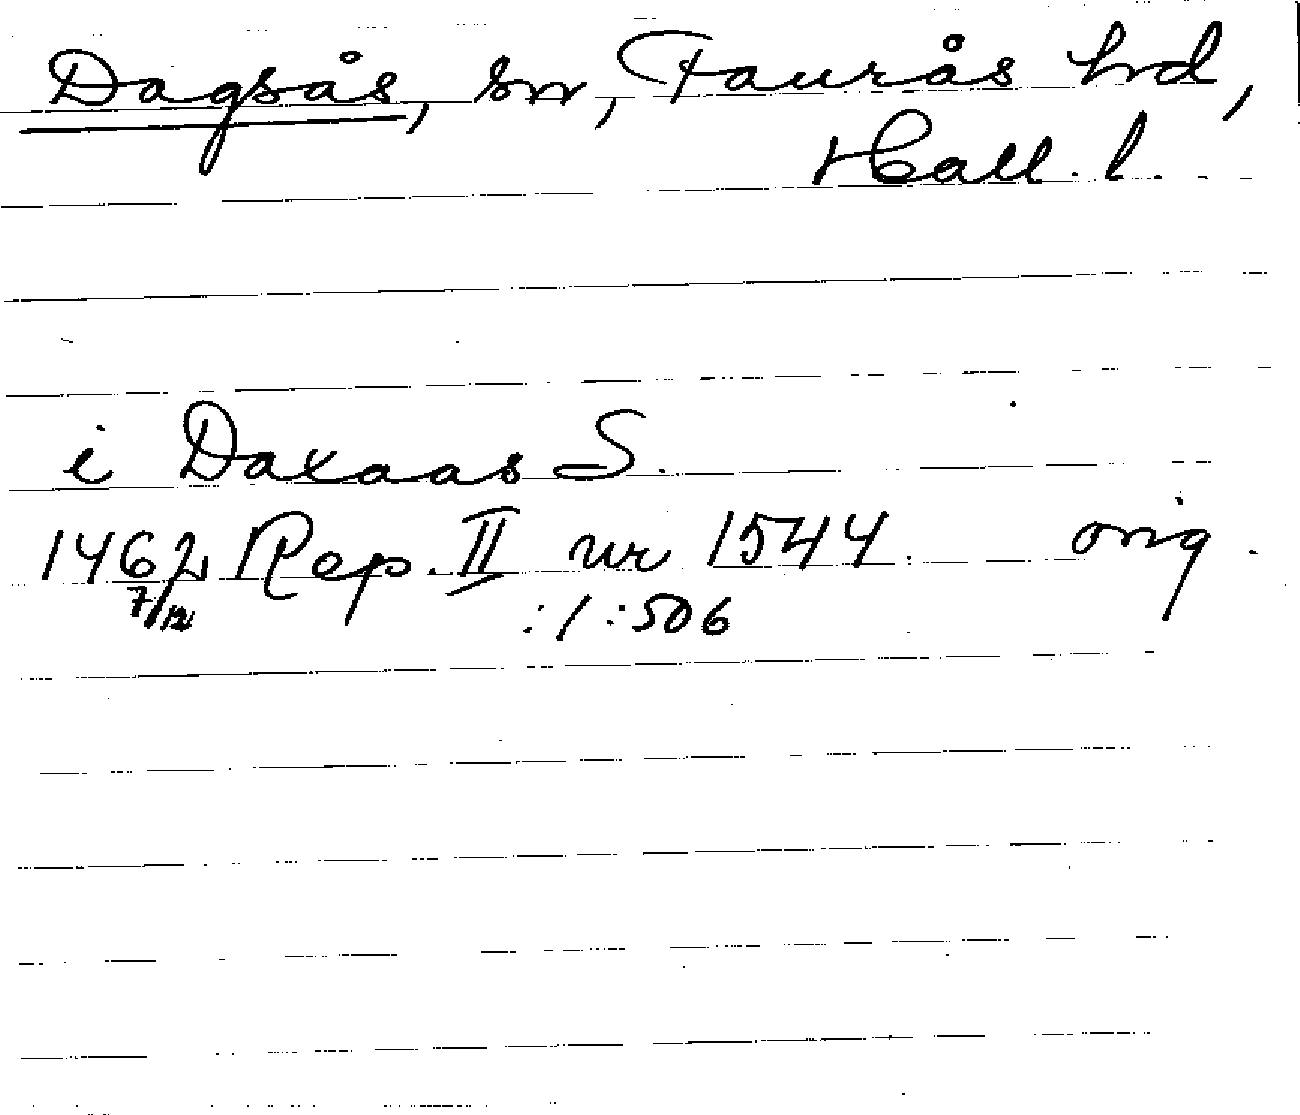 Dagsås, sn, Faurås hd,
Hall. l.
i Daxaas S.
1462 Rep. II nr 1544. orig.
7/12 :1:506